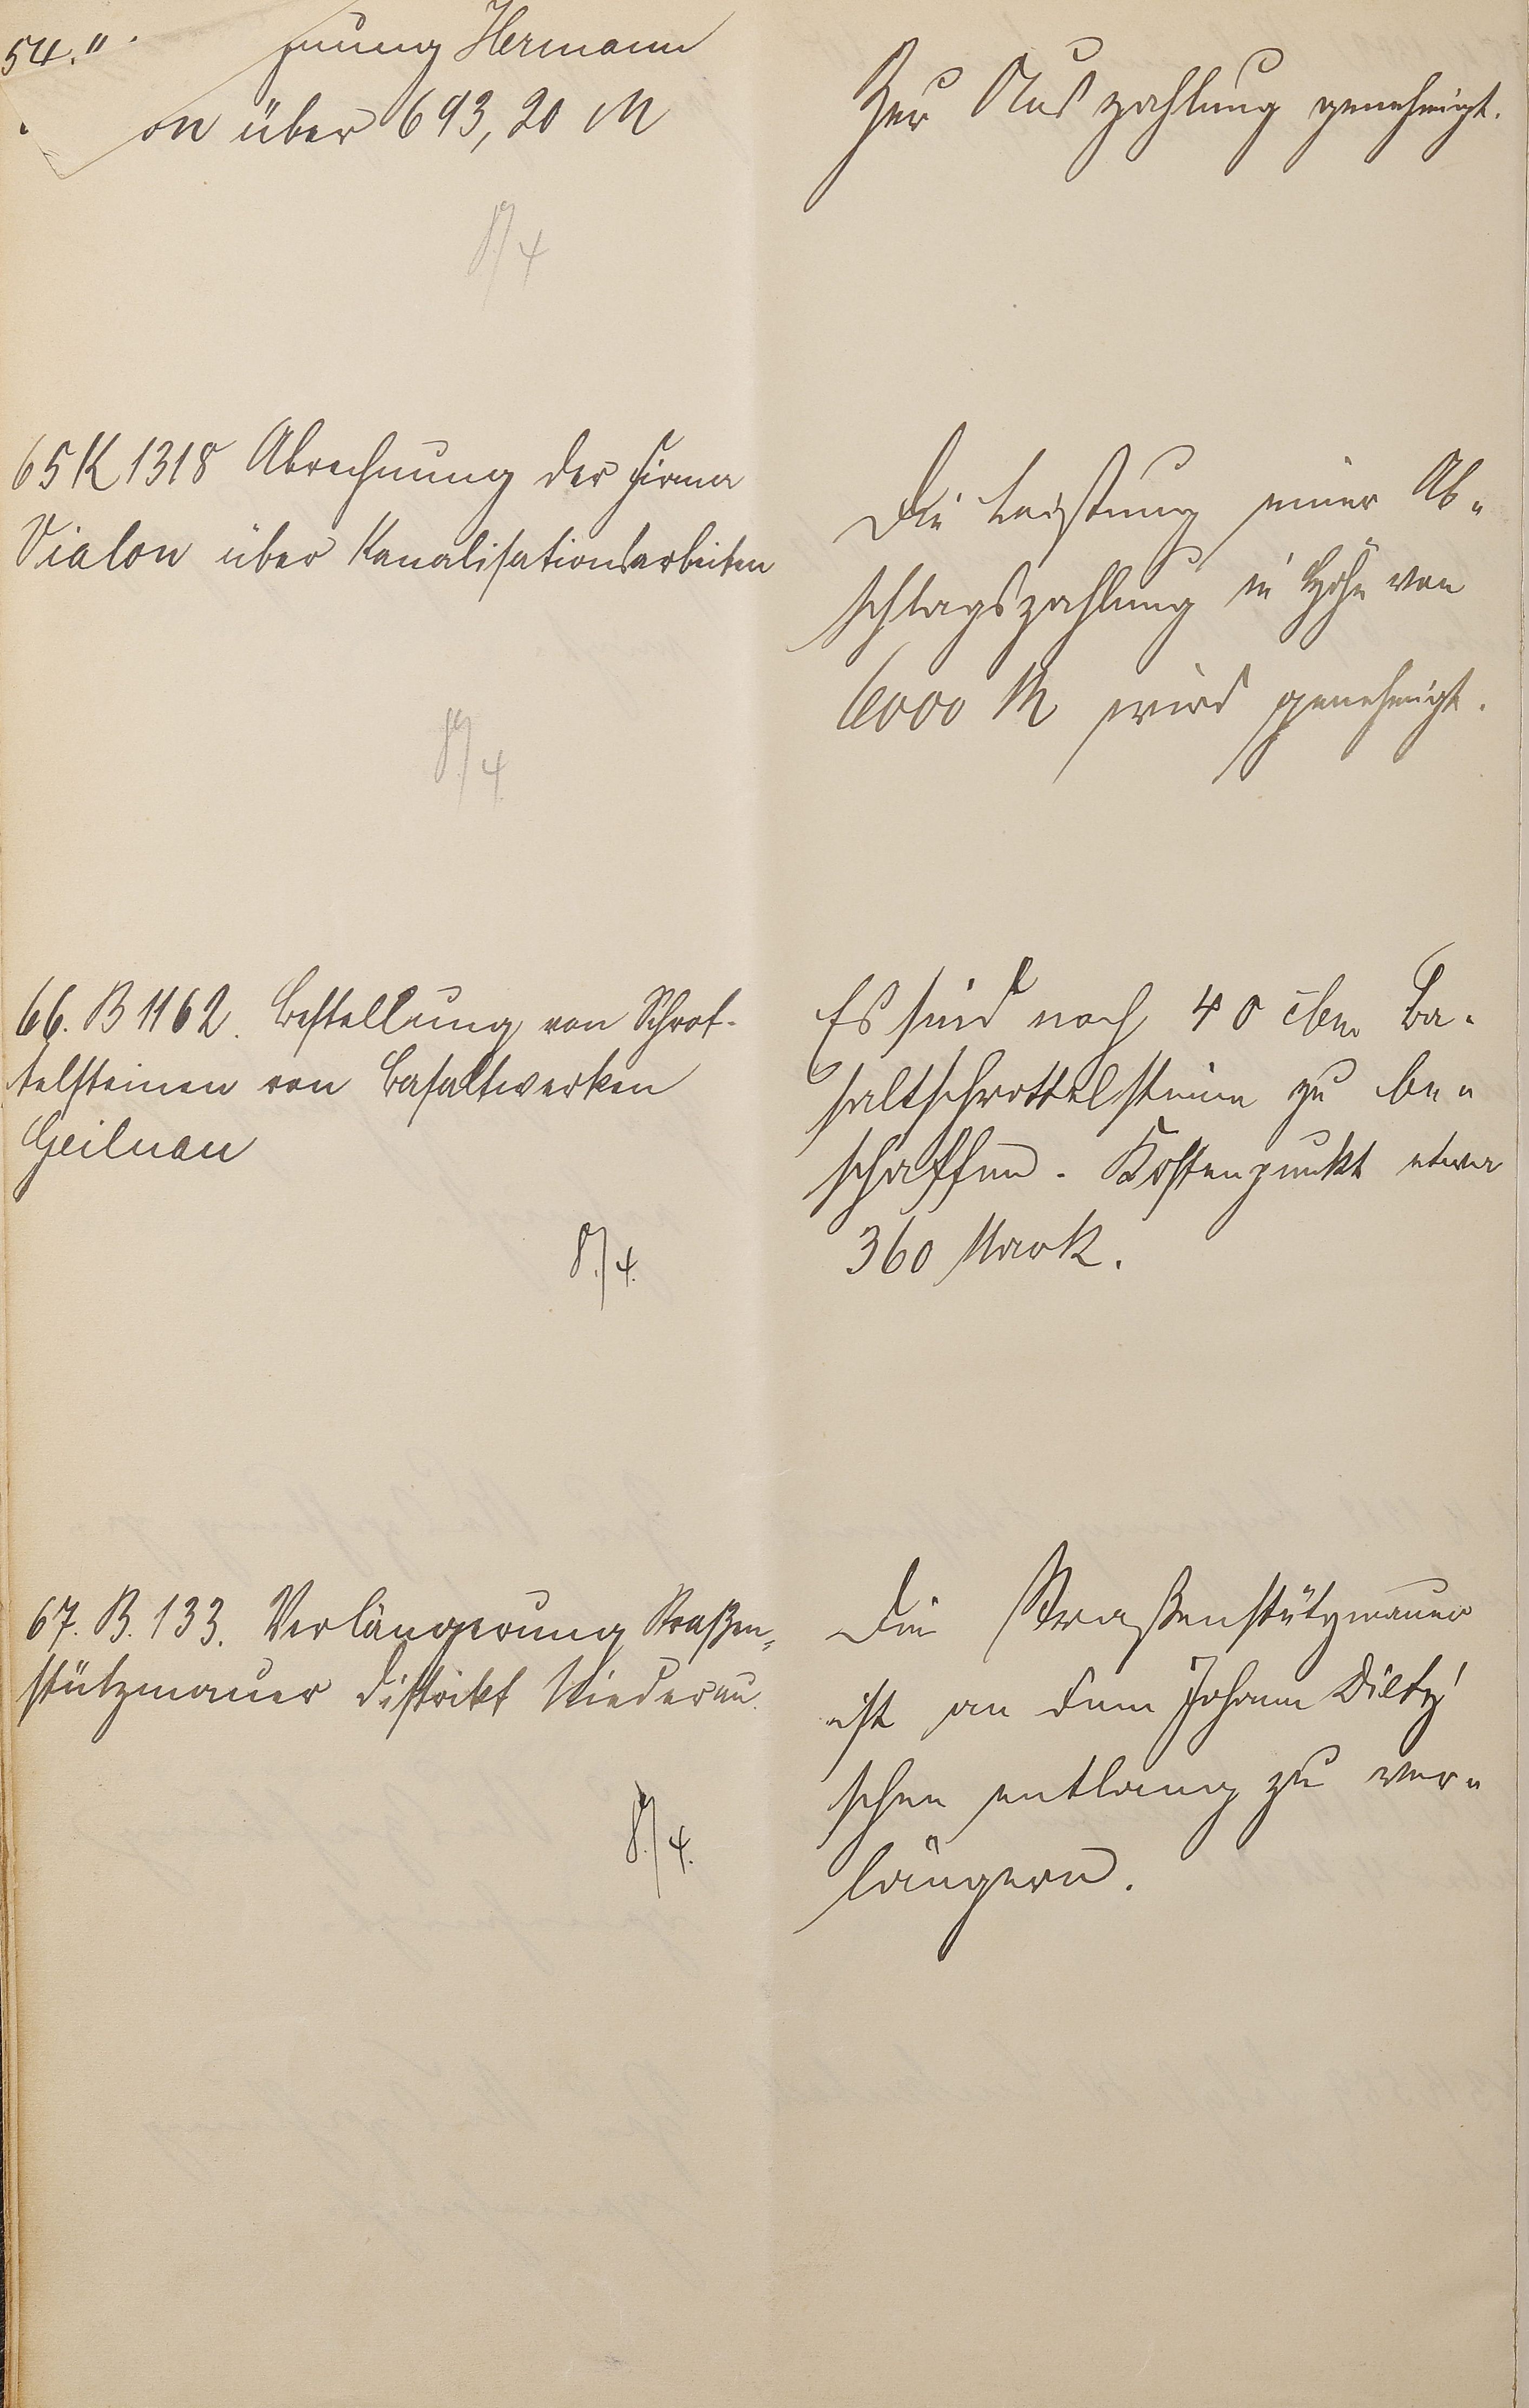 54."
hnung Hermann
on über 693,20 M
Zur Auszahlung genehmigt.
8/4
65 K 1318 Abrechnung der Firma
Vialon über Kanalisationsarbeiten
8/4.
Die Leistung einer Ab-
schlagszahlung in Höhe von
6000 M wird genehmigt.
66. B 1162. Bestellung von Schrot-
telsteinen von Basaltwerken
Geilnau
8./4.
Es sind noch 40 cbm Ba-
saltschrottelsteine zu be-
schaffen. Kostenpunkt etwa
360 Mark.
67. B. 133. Verlängerung Straßen-
stützmauer Distrikt Niederau.
8./4.
Die Straßenstützmauer
ist an dem Johann Dietz'
schen entlang zu ver-
längern.